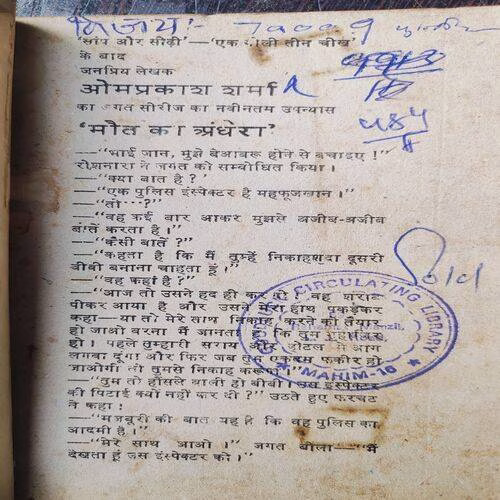 विजय:- 70009
'सांप और सीढ़ी'—'एक गोली तीन चीख'
के बाद
जनप्रिय लेखक
ओमप्रकाश शर्मा
का जगत सीरीज का नवीनतम उपन्यास
'मौत का अंधेरा'
—"भाई जान, मुझे बेआबरू होने से बचाइए!"
रोशनारा ने जगत को सम्बोधित किया।
—"क्या बात है?"
—"एक पुलिस इंस्पेक्टर है महफूजखान।"
—"तो...?"
—"वह कई बार आकर मुझसे अजीब-अजीब
बातें करता है।"
—"कैसी बातें?"
—"कहता है कि मैं तुम्हें निकाहशुदा दूसरी
बीवी बनाना चाहता हूं।"
—"वह कहां है?"
—"आज तो उसने हद ही कर दी! वह शराब
पीकर आया है और उसने मेरा हाथ पकड़कर
कहा—या तो मेरे साथ निकाह करने को तैयार
हो जाओ वरना मैं जानता हूं कि तुम
हो। पहले तुम्हारी सराय और होटल में आग
लगवा दूंगा और फिर जब तुम एकदम फकीर हो
जाओगी तो तुमसे निकाह करूंगा।"
—"तुम तो हौसले वाली हो बीबी। उस इंस्पेक्टर
की पिटाई क्यों नहीं कर दी?" उठते हुए
ने कहा:
—"मजबूरी की बात यह है कि वह पुलिस का
आदमी है।"
—"मेरे साथ आओ।" जगत बोला—"मैं
देखता हूं उस इंस्पेक्टर को।"
Sold
CIRCULATING LIBRARY
MAHIM-16